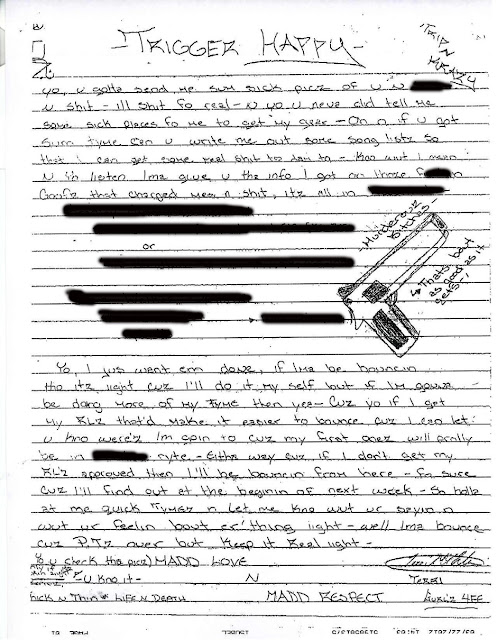 TRIGGER HAPPY
yo, u gotta send me sum sick picz of u n
n shit - ill shit fo real - n yo u neva did tell me
some sick places fo me to get my gear - On n if u got
sum tyme can u write me out some song listz so
that I can get some real shit to down to - Kno wut I mean
n ib listen Ima give u tha info I got on those
Goofz that charged me n shit, itz all in
Murderouz Bitches
or
Thats bout as good as it gets -!
Yo, I jus want em done, if Ima be bouncin
tho itz light cuz I'll do it my self but if Im gonna
be doing more of my Tyme then yea - Cuz yo if I get
my RLz that'd make it easier to bounce cuz I can let
u kno were'z Im goin to cuz my first onez will prolly
be in ryte - Eitha way cuz if I don't get my
RL'z approved then I'll be bouncin from here - fo sure
cuz I'll find out at the beginin of next week - So holla
at me quick Tymez n let me kno wut ur sayin n
wut ur feelin bout er'thing light - well Ima bounce
cuz P.Tz over but Keep it Real light -
Yo u check tha picz) MADD LOVE
U Kno it - N
Thick N Thin + Life N Death MADD RESPECT